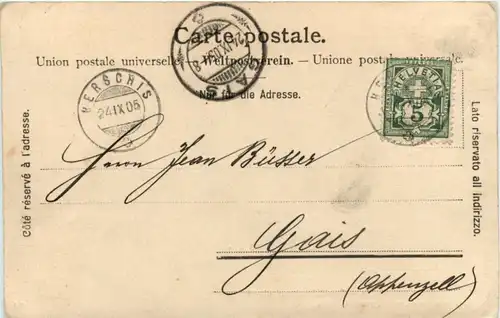 Carte postale.
Union postale universelle. — Weltpostverein. — Unione postale universale.
Nur für die Adresse.
GAIS
24.IX.05
HERSCHIS
24.IX.05
HELVETIA
5
Côté réservé à l'adresse.
Lato riservato all indirizzo.
Herrn Jean Büsser
Gais
(Appenzell)